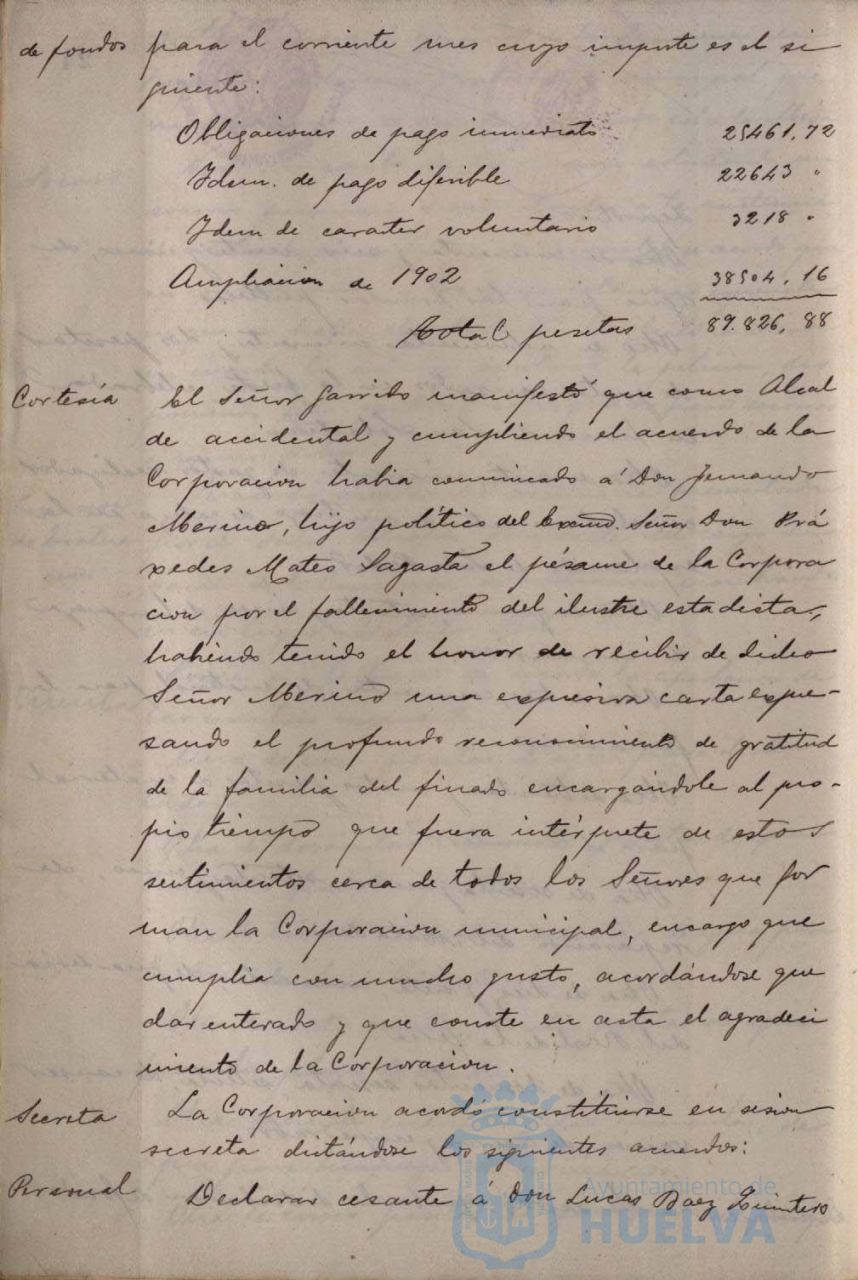 de fondos para el corriente mes cuyo importe es el si
guiente:
Obligaciones de pago inmediato 25461,72
Idem. de pago diferible 22643 "
Idem de caracter voluntario 3218 "
Ampliacion de 1902 38504,16
Total pesetas 89.826,88
Cortesía El Señor Garrido manifestó que como Alcal
de accidental y cumpliendo el acuerdo de la
Corporacion habia comunicado á Don Fernando
Merino, hijo político del Excmo. Señor Don Prá
xedes Mateo Sagasta el pésame de la Corpora
cion por el fallecimiento del ilustre estadista,
habiendo tenido el honor de recibir de dicho
Señor Merino una expresiva carta expre-
sando el profundo reconocimiento de gratitud
de la familia del finado encargándole al pro-
pio tiempo que fuera intérprete de estos
sentimientos cerca de todos los Señores que for
man la Corporacion municipal, encargo que
cumplia con mucho gusto, acordándose que
dar enterado y que conste en acta el agradeci
miento de la Corporacion.
Secreta La Corporacion acordó constituirse en sesion
secreta dictándose los siguientes acuerdos:
Personal Declarar cesante á Don Lucas Baez Quintero
Ayuntamiento de
HUELVA